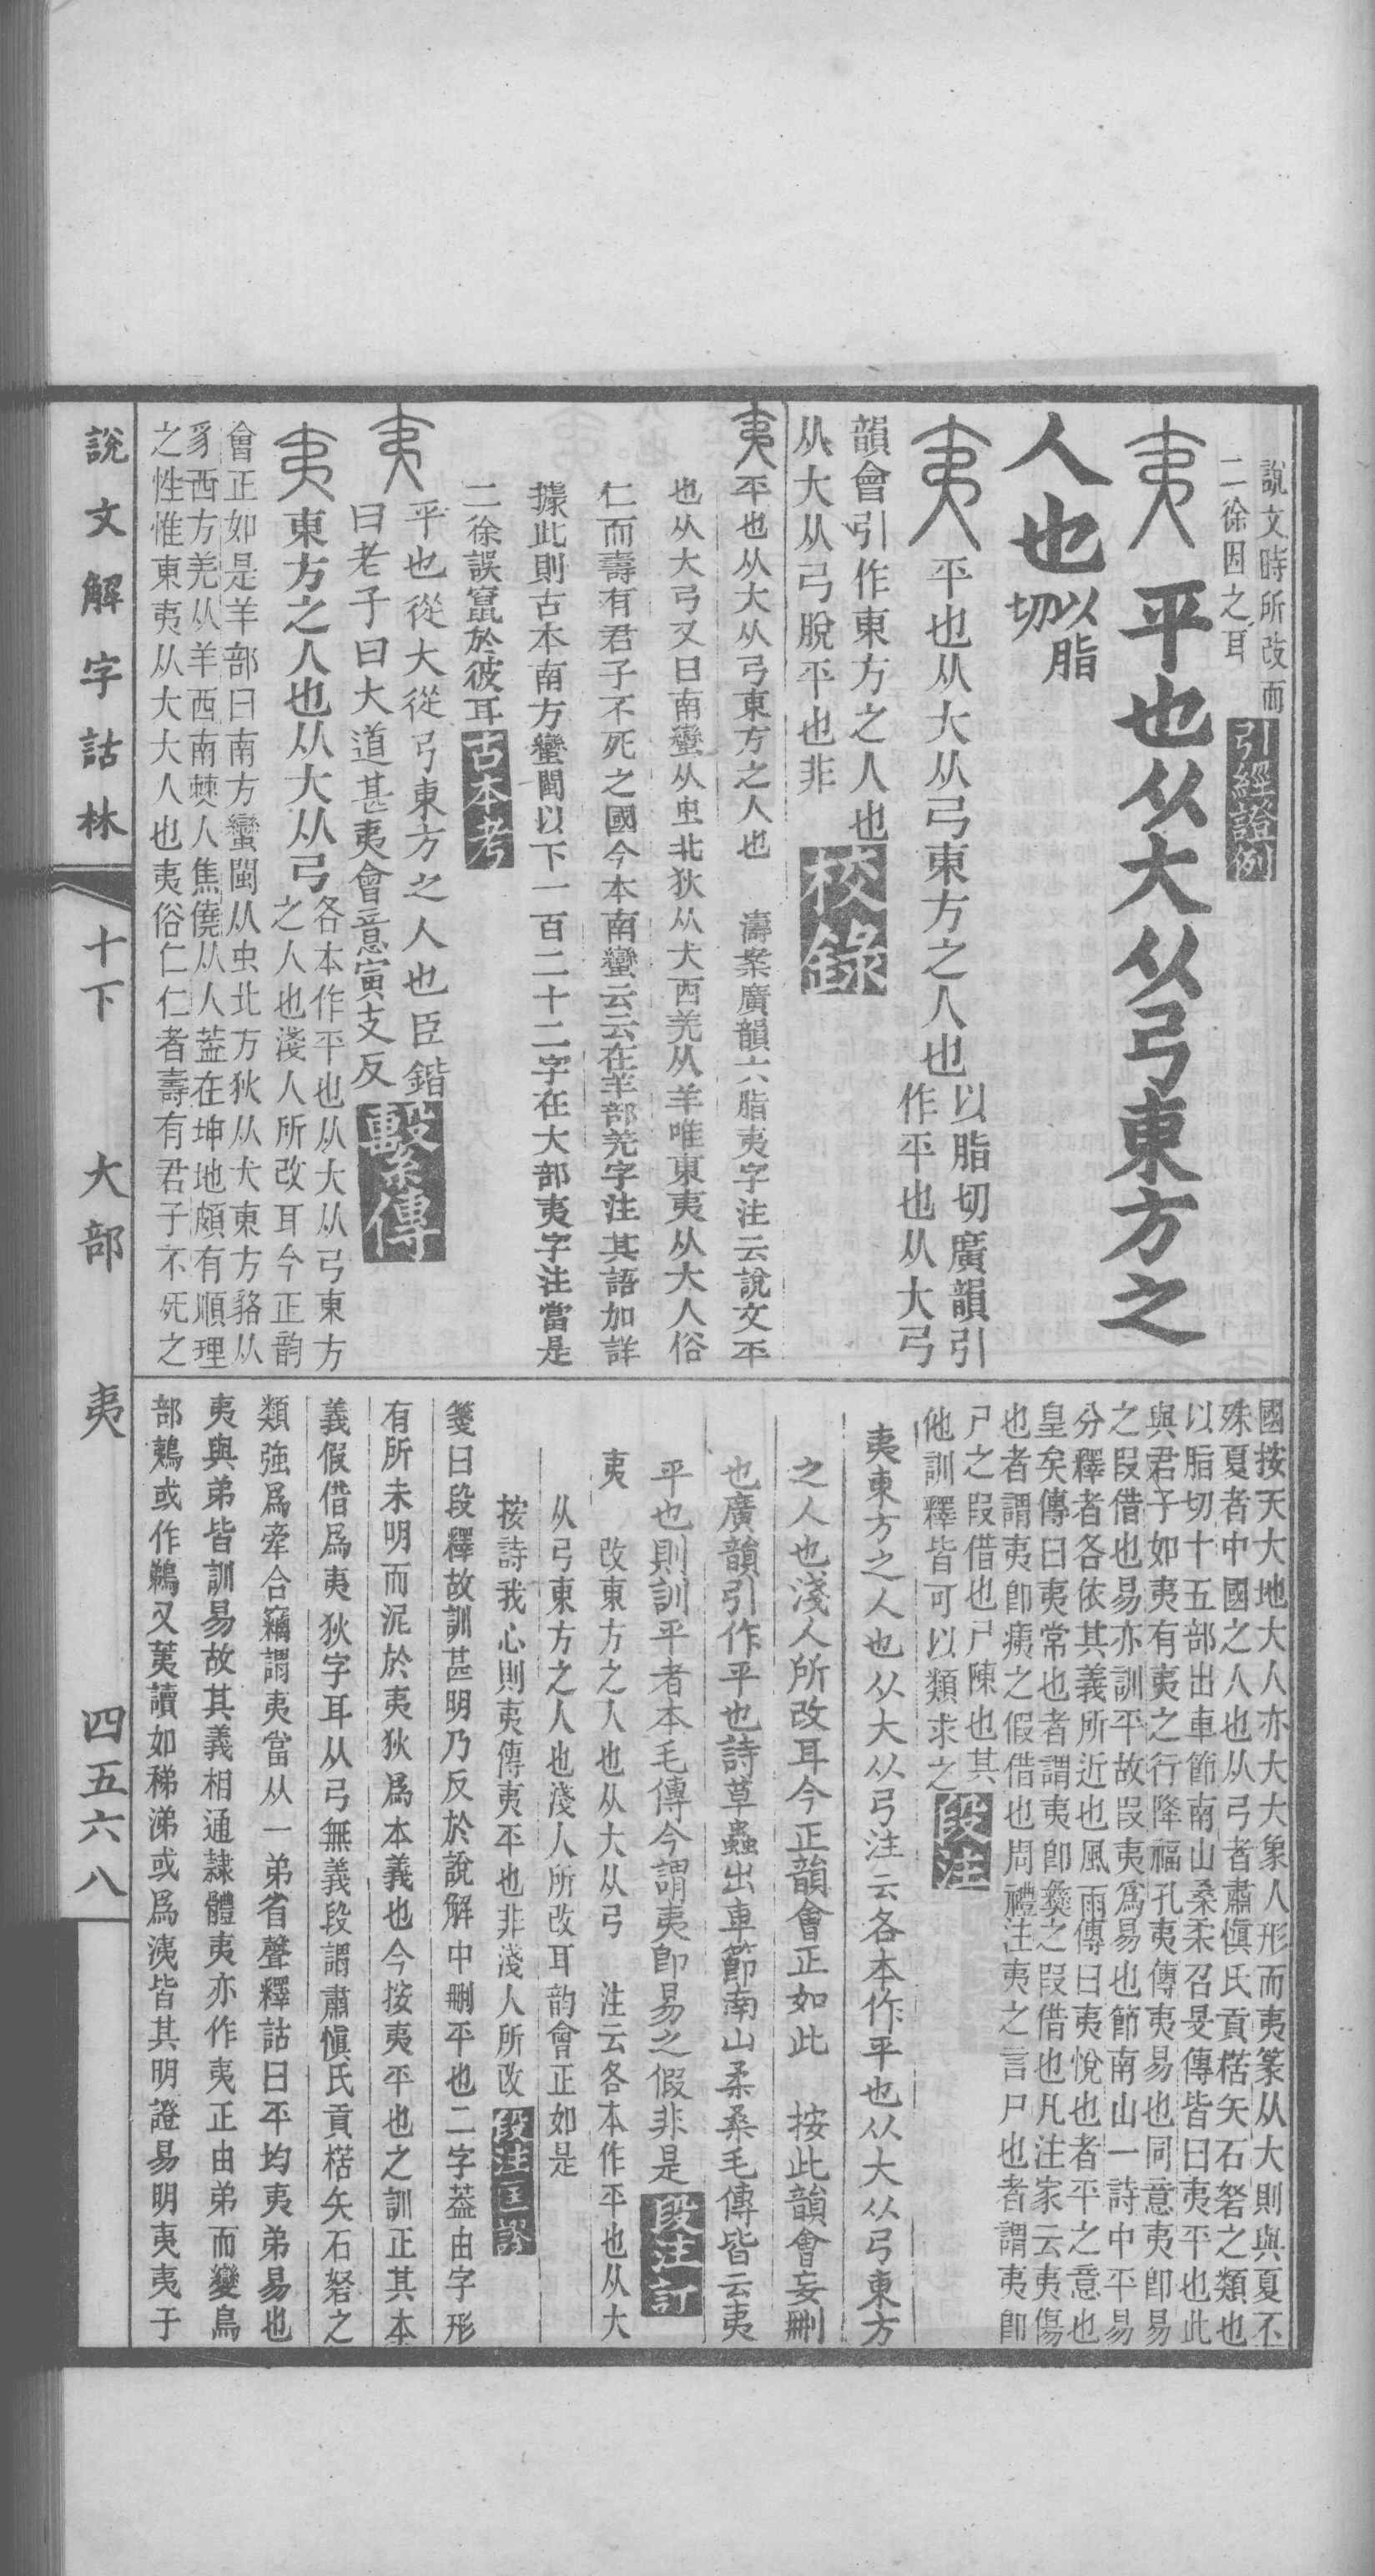 說文時所改而
二徐因之耳 引經證例
夷 平也从大从弓東方之
人也以脂切
夷 平也从大从弓東方之人也以脂切廣韻引作平也从大弓
韻會引作東方之人也
从大从弓脫平也非 校錄
夷 平也从大从弓東方之人也 濤案廣韻六脂夷字注云說文平
也从大弓又曰南蠻从虫北狄从犬西羌从羊唯東夷从大人俗
仁而壽有君子不死之國今本南蠻云云在羊部羌字注其語加詳
據此則古本南方蠻閩以下一百二十二字在大部夷字注當是
二徐誤竄於彼耳 古本考
夷 平也從大從弓東方之人也臣鍇
曰老子曰大道甚夷會意寅支反 繫傳
夷 東方之人也从大从弓各本作平也从大从弓東方之人也淺人所改耳今正韵
會正如是羊部曰南方蠻閩从虫北方狄从犬東方貉从
豸西方羌从羊西南僰人焦僥从人葢在坤地頗有順理
之性惟東夷从大大人也夷俗仁仁者壽有君子不死之
國按天大地大人亦大大象人形而夷篆从大則與夏不
殊夏者中國之人也从弓者肅愼氏貢楛矢石砮之類也
以脂切十五部出車節南山桑柔召旻傳皆曰夷平也此
與君子如夷有夷之行降福孔夷傳夷易也同意夷卽易
之叚借也易亦訓平故叚夷爲易也節南山一詩中平易
分釋者各依其義所近也風雨傳曰夷悅也者平之意也
皇矣傳曰夷常也者謂夷卽彝之叚借也凡注家云夷傷
也者謂夷卽痍之假借也周禮注夷之言尸也者謂夷卽
尸之叚借也尸陳也其
他訓釋皆可以類求之 段注
夷東方之人也从大从弓注云各本作平也从大从弓東方
之人也淺人所改耳今正韻會正如此 按此韻會妄刪
也廣韻引作平也詩草蟲出車節南山柔桑毛傳皆云夷
平也則訓平者本毛傳今謂夷卽易之假非是 段注訂
夷 改東方之人也从大从弓 注云各本作平也从大
从弓東方之人也淺人所改耳韵會正如是
按詩我心則夷傳夷平也非淺人所改 段注匡謬
箋曰段釋故訓甚明乃反於說解中刪平也二字葢由字形
有所未明而泥於夷狄爲本義也今按夷平也之訓正其本
義假借爲夷狄字耳从弓無義段謂肅愼氏貢楛矢石砮之
類強爲牽合竊謂夷當从一弟省聲釋詁曰平均夷弟易也
夷與弟皆訓易故其義相通隷體夷亦作夷正由弟而變鳥
部鶇或作鵜又荑讀如稊涕或爲洟皆其明證易明夷夷于
說文解字詁林 十下 大部 夷 四五六八